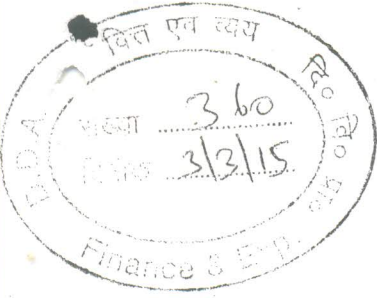 वित्त एवं व्यय
दि० वि० प्रा०
D.D.A.
संख्या 360
दिनांक 3/3/15
Finance & Exp.